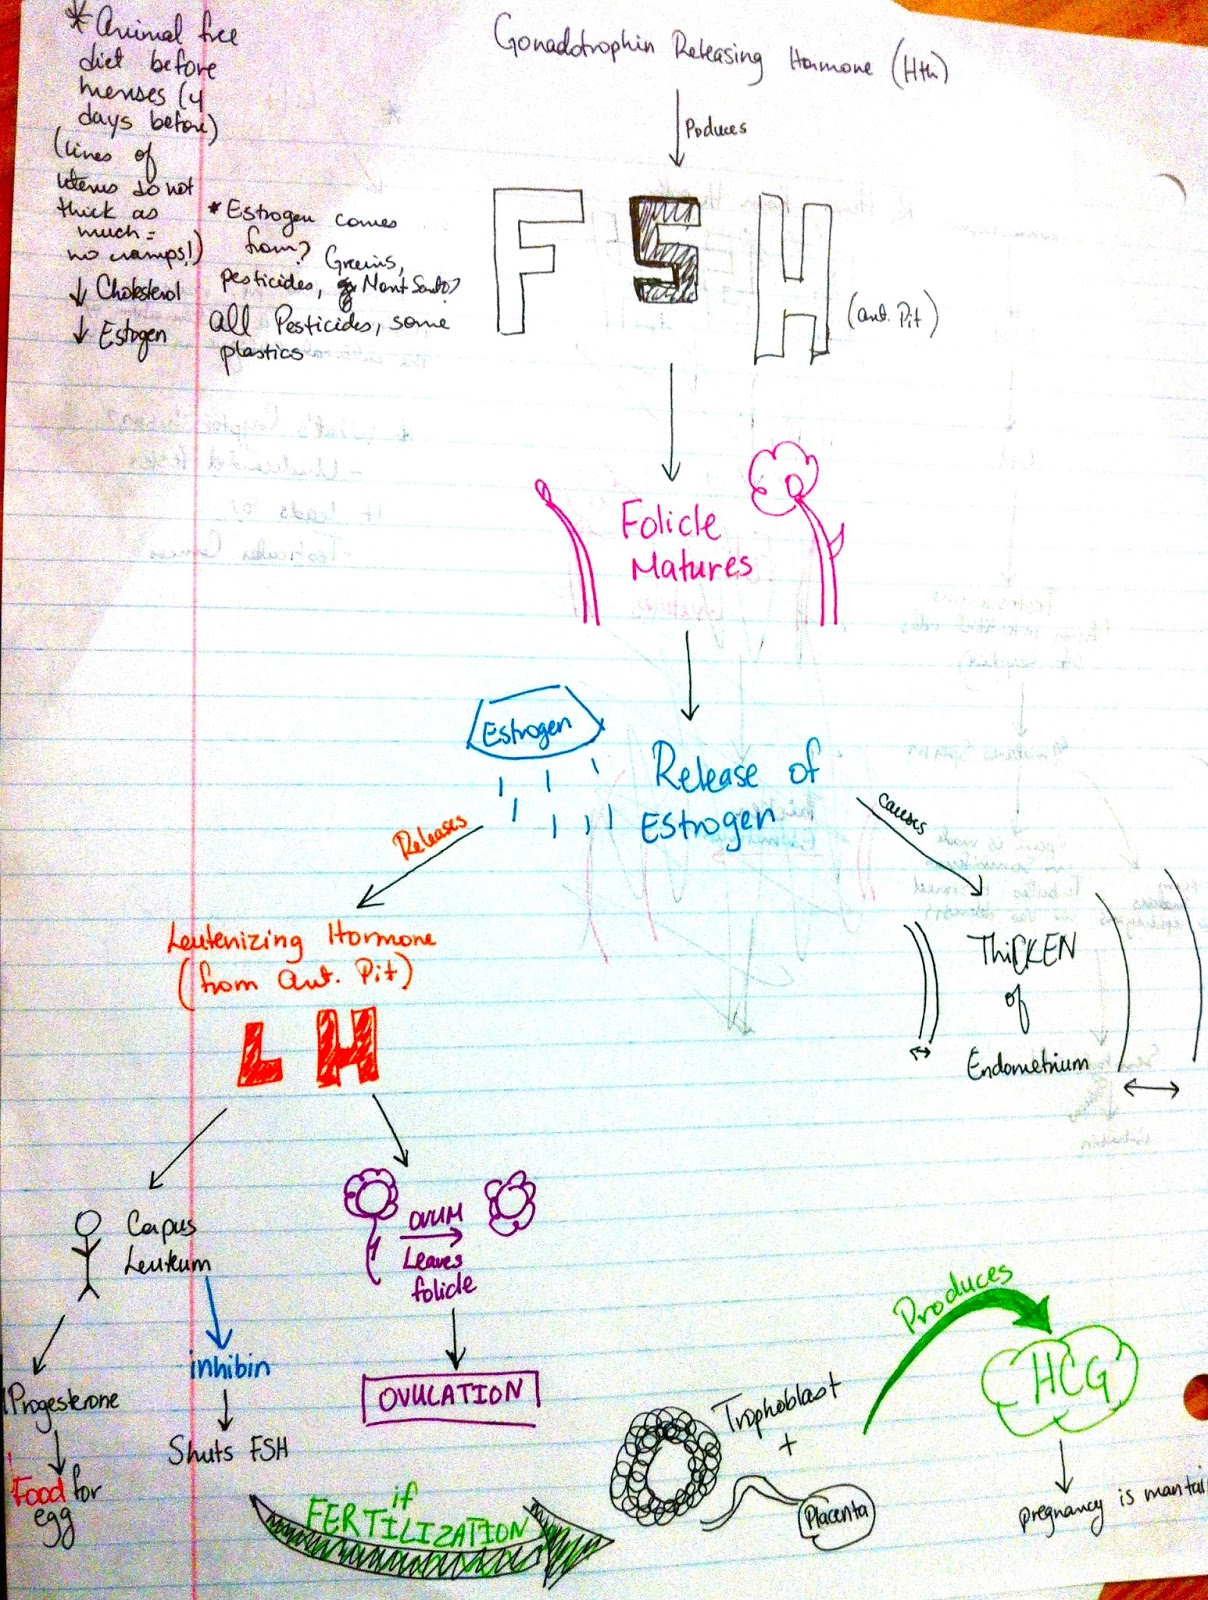 *Animal free
diet before
menses (4
days before)
(lines of
uterus do not
thick as
much =
no cramps!)
↓ Cholsterol
↓ Estrogen
* Estrogen comes
from? Greens,
pesticides, MontSanto?
all Pesticides, some
plastics
Gonadotrophin Releasing Hormone (Hth)
Poduces
FSH
(ant. Pit)
Folicle
Matures
Estrogen
Release of
Estrogen
Releases
causes
Leutenizing Hormone
(from ant. Pit)
LH
THicKEN
of
Endometrium
Corpus
Leuteum
OVUM
Leaves
folicle
inhibin
Shuts FSH
Progesterone
Food for
egg
OVULATION
if
FERTILIZATION
Trophoblast
+
Placenta
Produces
HCG
pregnancy is mantai